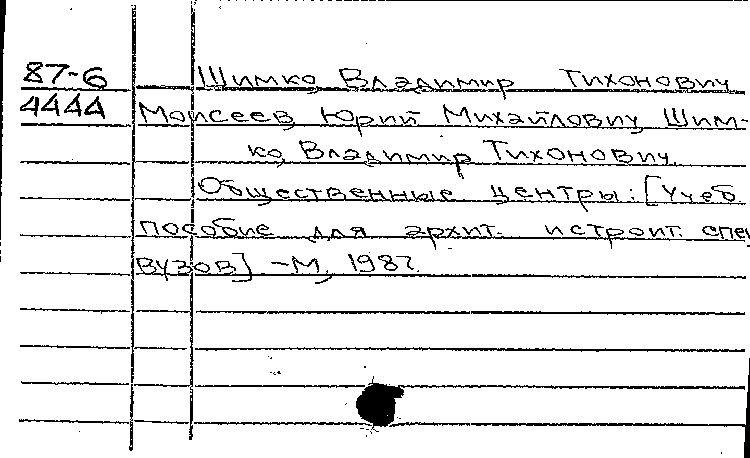 87-6 Шимко, Владимир Тихонович
4444 Моисеев, Юрий Михайлович, Шим-
ко, Владимир Тихонович.
Общественные центры: [Учеб.
пособие для архит. и строит. спец
вузов]. -М., 1987.